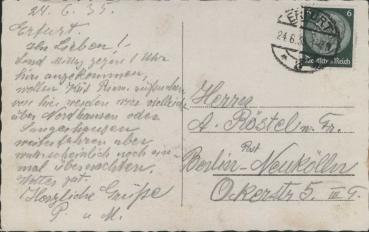 24.6.35.
Erfurt.
Ihr Lieben!
Sind Mittag gegen 1 Uhr
hier angekommen,
wollen
von hier werden wir vielleicht
über Nordhausen oder
Sangerhausen
weiterfahren aber
wahrscheinlich noch ein-
mal übernachten.
Wetter gut.
Herzliche Grüße
P. u. M.
ERFURT
24.6.35
6
Deutsches Reich
Herrn
A. Röstel u. Fr.
Post
Berlin-Neukölln
Ockerstr 5. III